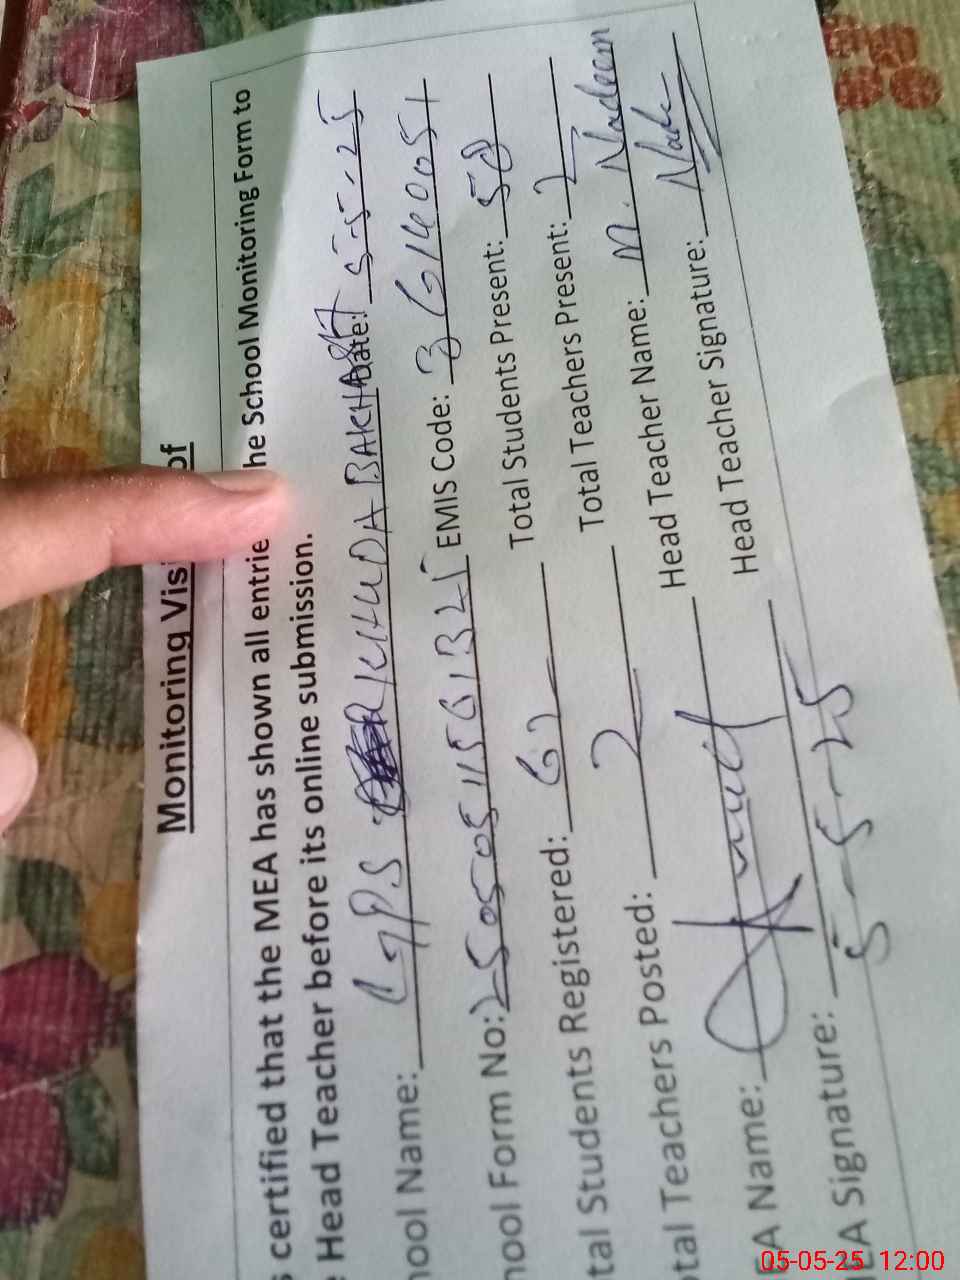 Monitoring Vis of
s certified that the MEA has shown all entrie he School Monitoring Form to
e Head Teacher before its online submission.
hool Name: GPS KHUDA BAKHASH Date: 5-5-25
hool Form No: EMIS Code:
tal Students Registered: 62 Total Students Present: 50
tal Teachers Posted: 2 Total Teachers Present: 2
EA Name: Head Teacher Name: M. Nadeem
EA Signature: Head Teacher Signature:
5-5-25
05-05-25 12:00